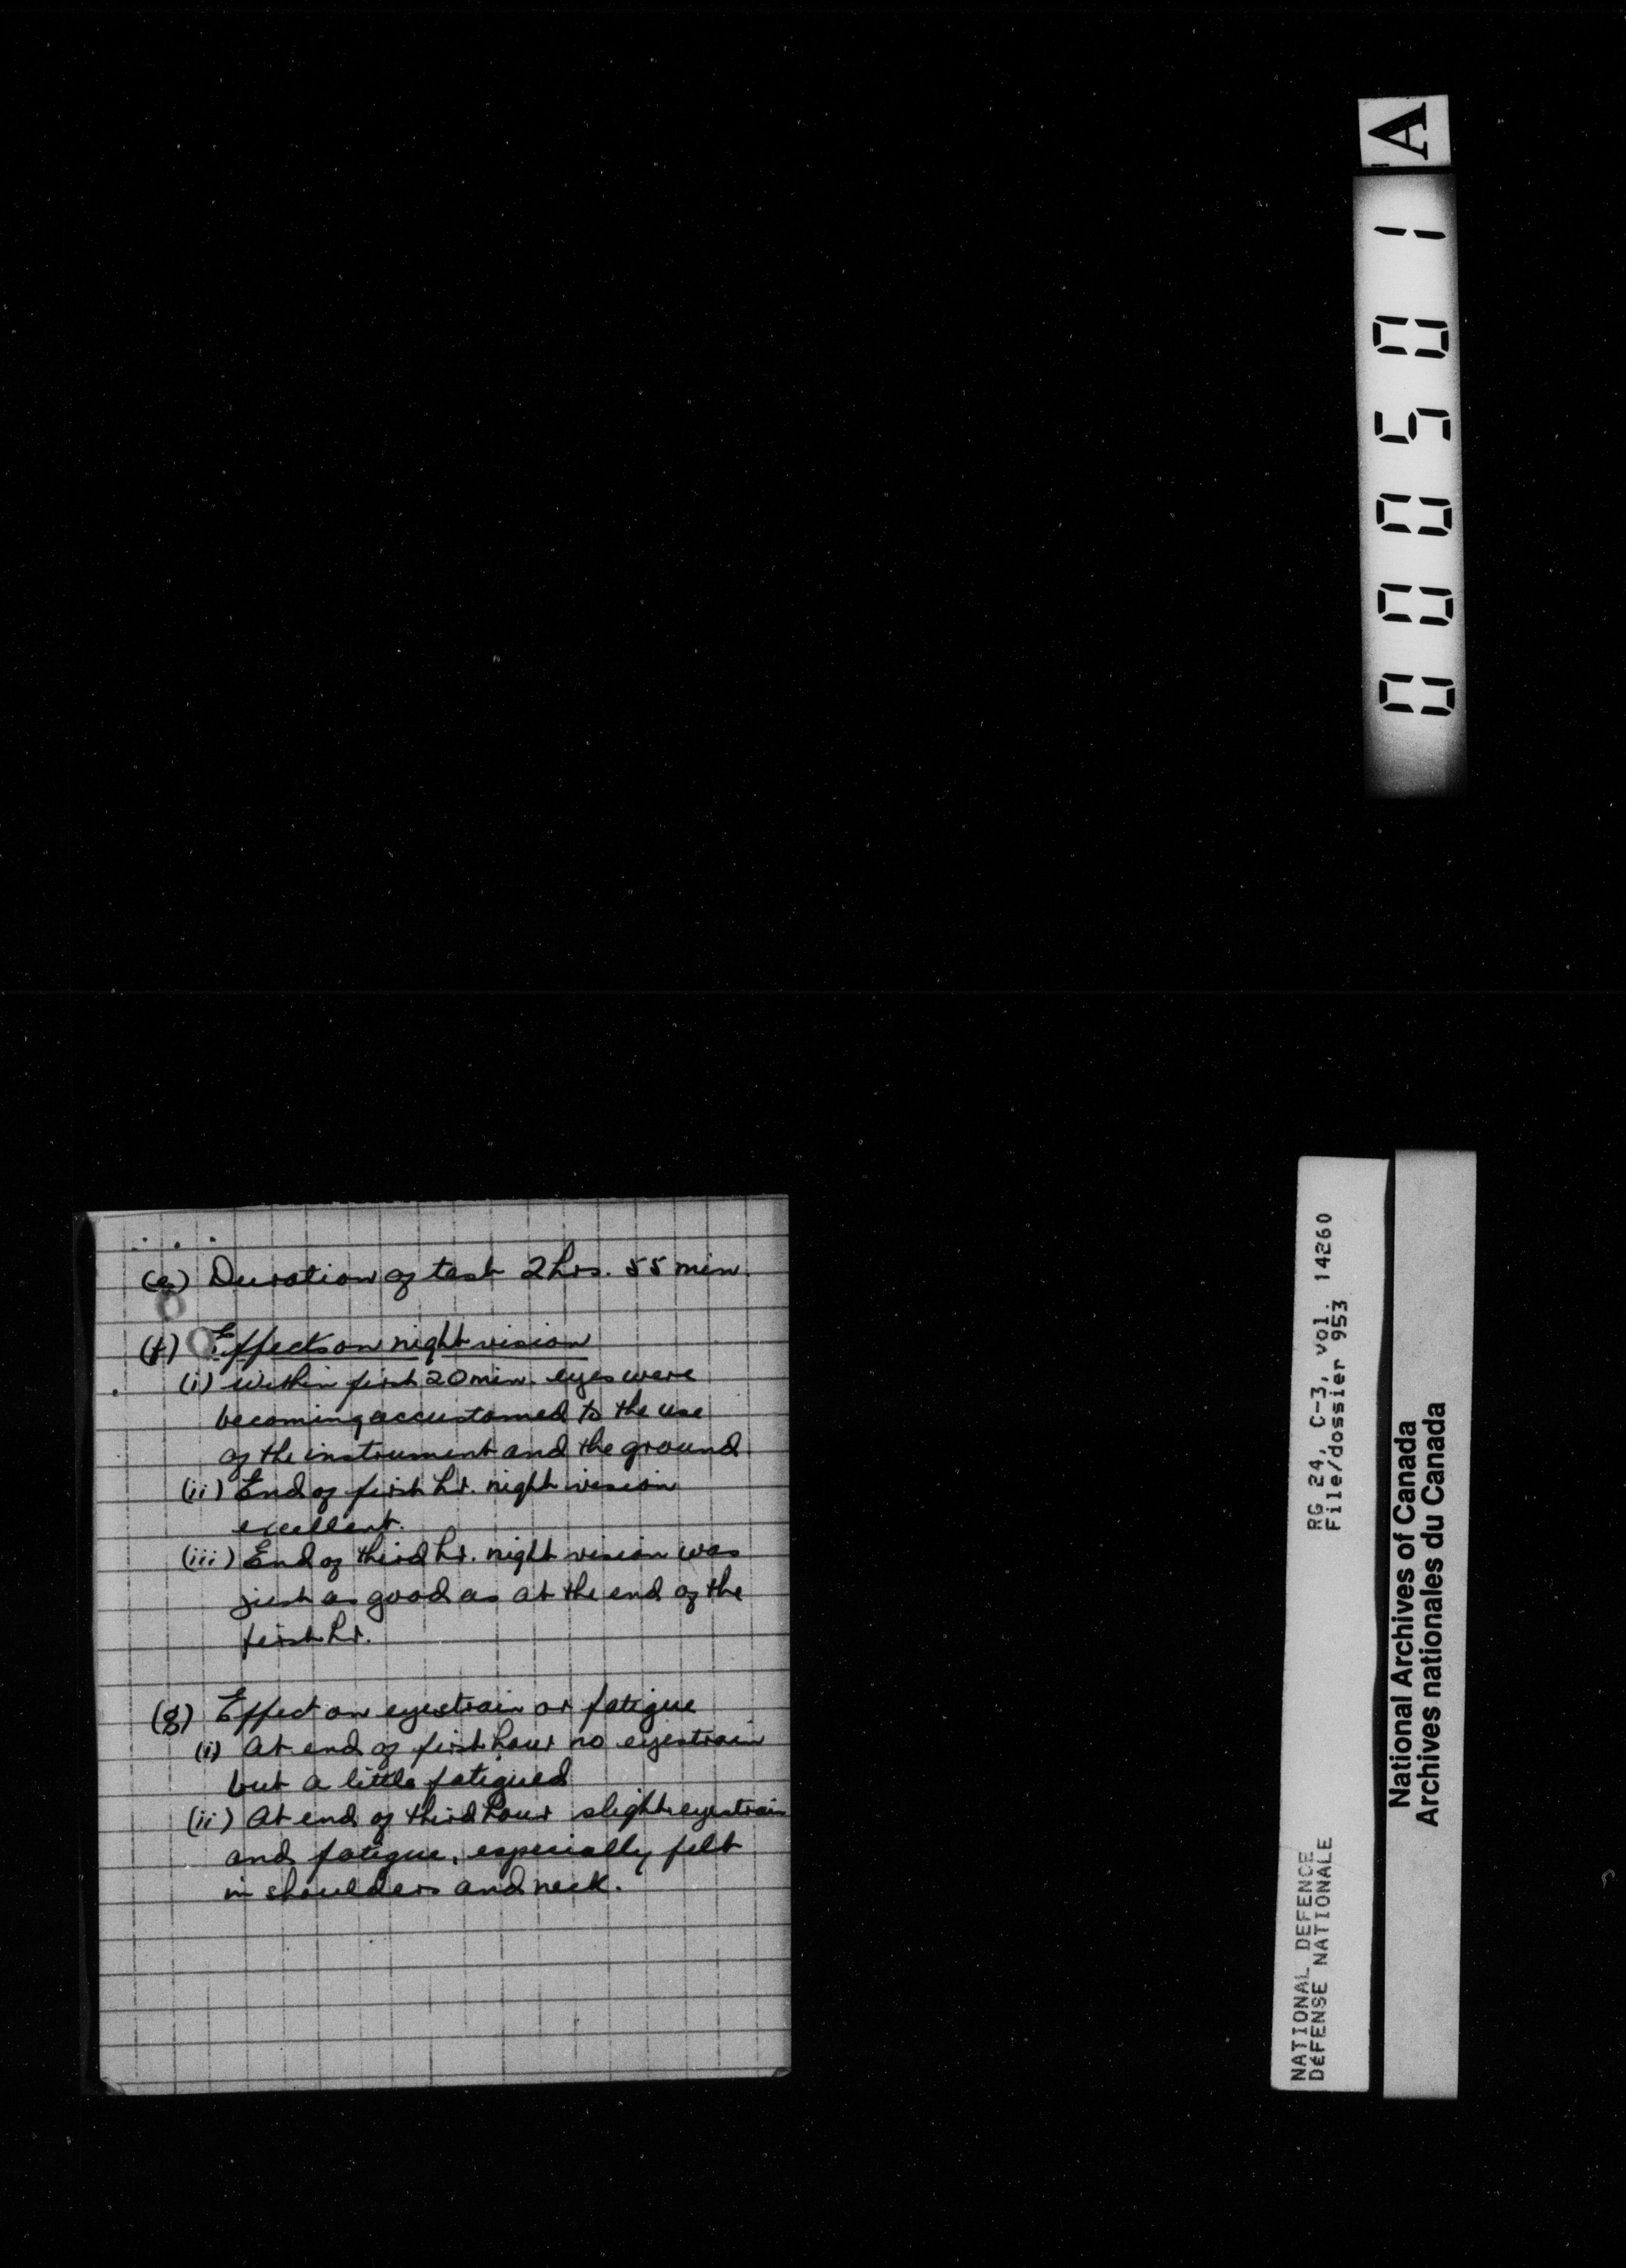 (e) Duration of test 2 hrs. 55 min.
(f) Effects on night vision
(i) Within first 20 min. eyes were
becoming accustomed to the use
of the instrument and the ground
(ii) End of first hr. night vision
excellent.
(iii) End of third hr. night vision was
just as good as at the end of the
first hr.
(g) Effect on eyestrain or fatigue
(i) At end of first hour no eyestrain
but a little fatigued
(ii) At end of third hour slight eyestrain
and fatigue, especially felt
in shoulders and neck.
000501 A
NATIONAL DEFENCE RG 24, C-3, vol. 14260
DéFENSE NATIONALE File/dossier 953
National Archives of Canada
Archives nationales du Canada